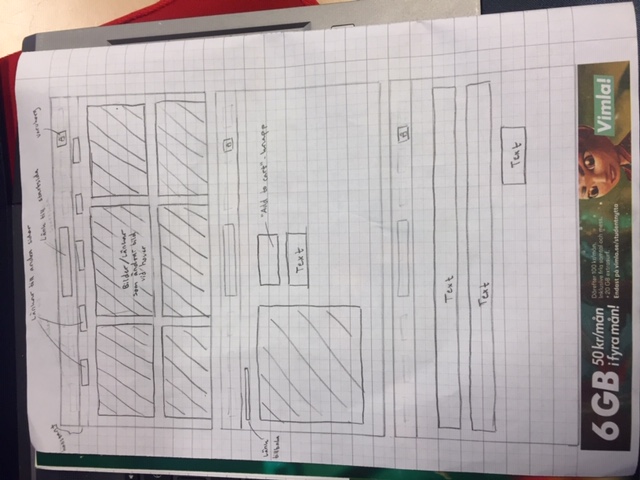 Länkar till andra sidor
Länk till startsida
varukorg
Bilder/Länkar
som ändrar bild
vid hover
Länk
tillbaka
"Add to cart"-knapp
Text
Text
Text
Text
6 GB 50 kr/mån
i fyra mån!
Därefter 100 kr/mån.
Inklusive fria samtal och mess.
+20 GB extrasurf.
Endast på vimla.se/studentnytta
Vimla!